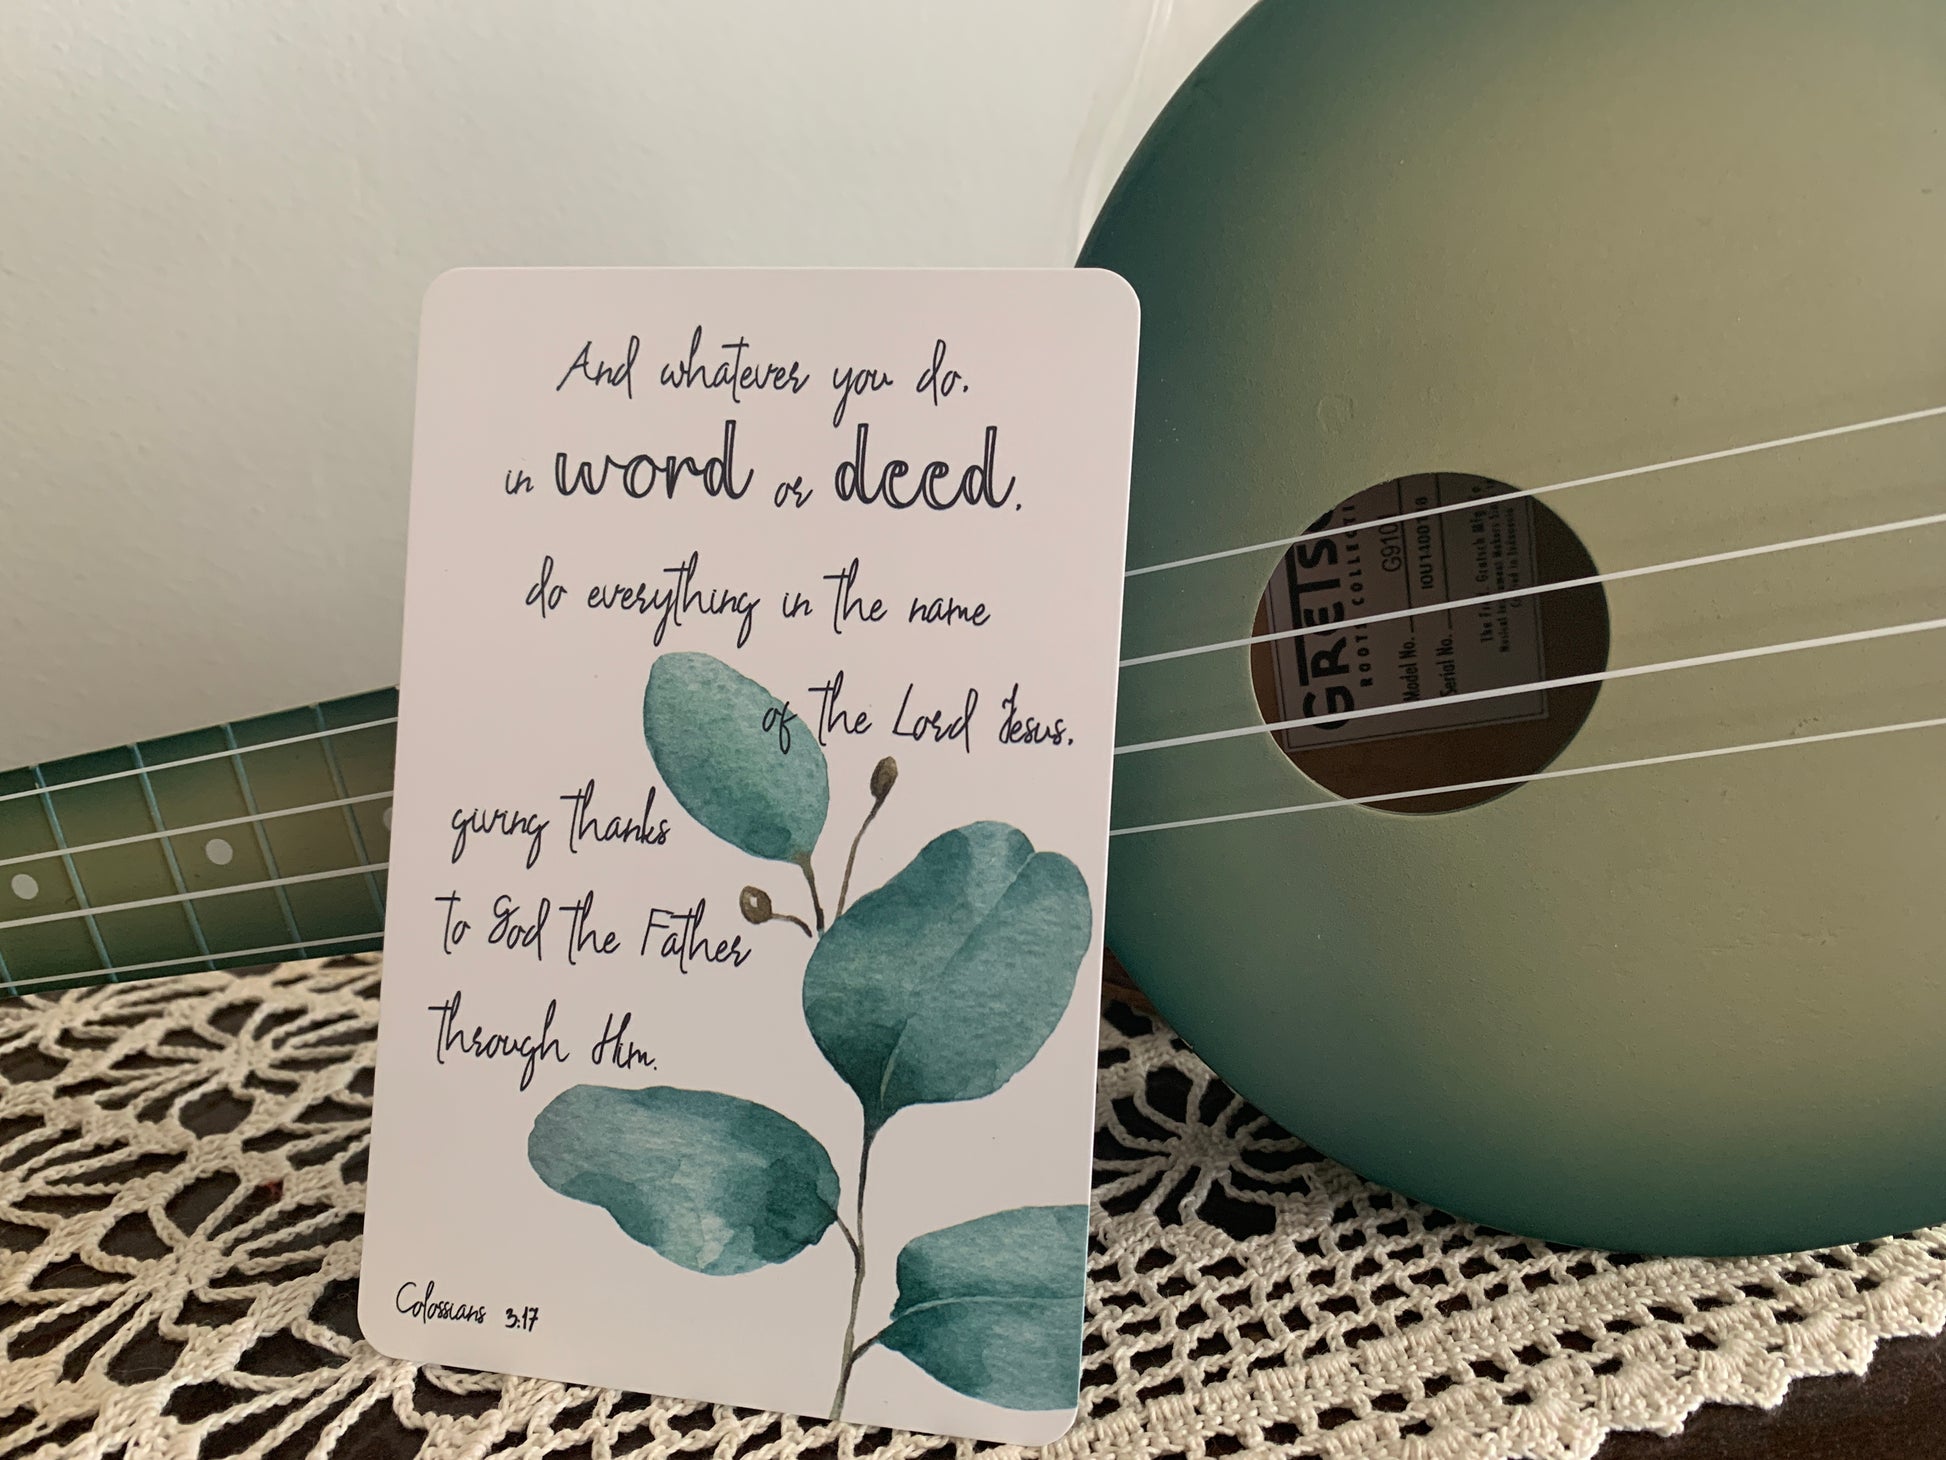 And whatever you do,
in word or deed,
do everything in the name
of the Lord Jesus,
giving thanks
to God the Father
through Him.
Colossians 3:17
GRETSC
ROOTS COLLECTI
Model No. G910
Serial No.
The Fred Gretsch Mfg. Co.
Musical Instrument Makers